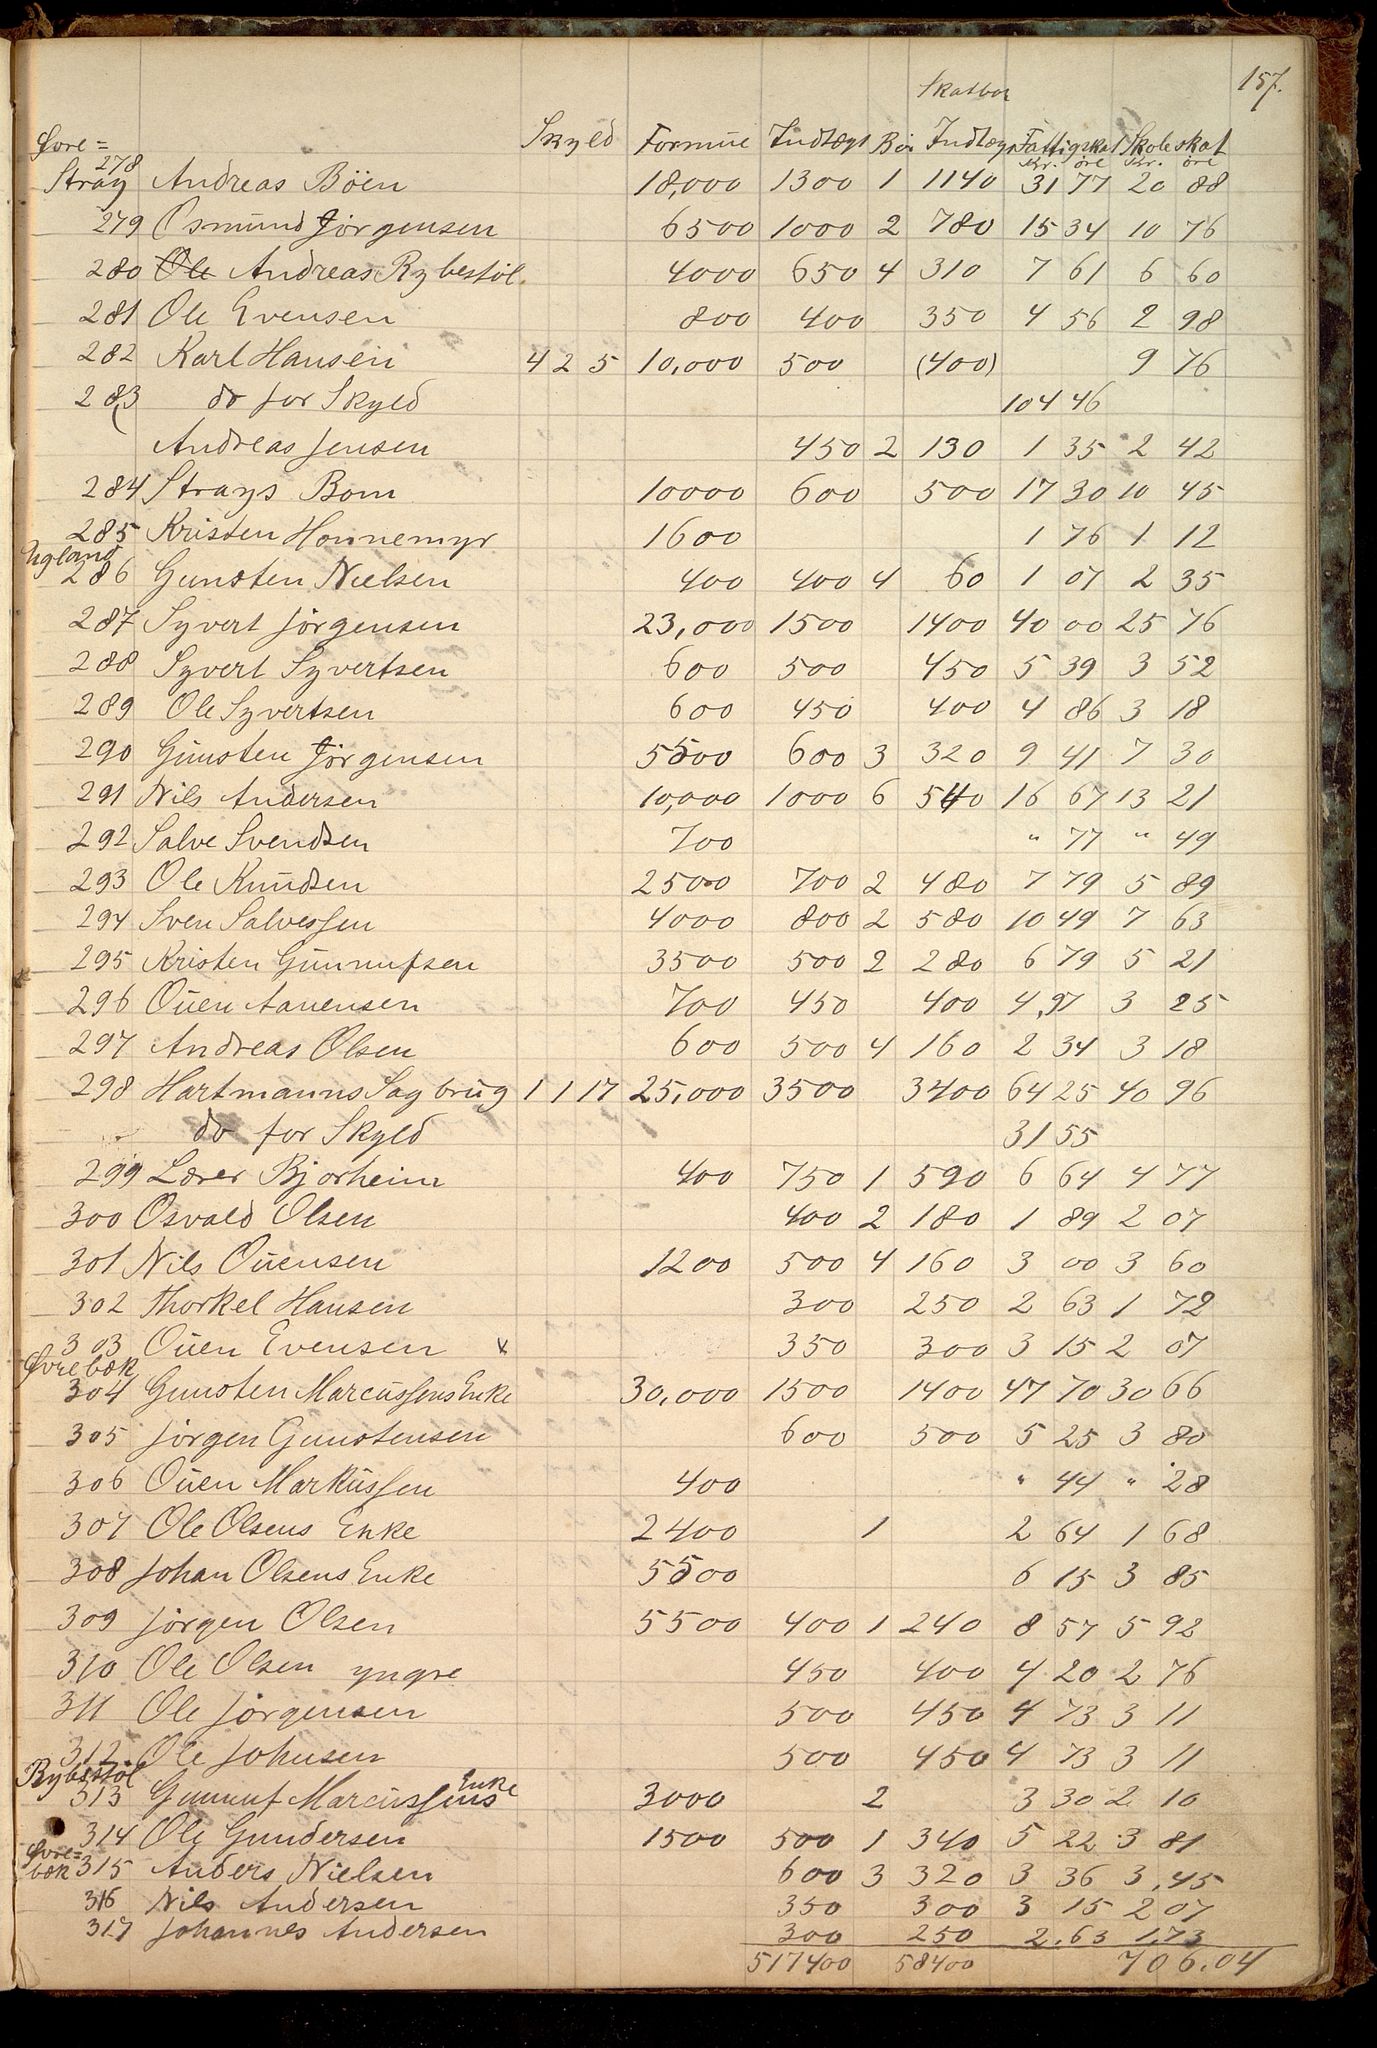 157.
Skatbar
Skyld Formue Indtægt Bö Indtægt Fattigskat Skoleskat
Kr. öre Kr. öre
Øvre=
Stray 278 Andreas Böen 18,000 1300 1 1140 31 77 20 88
279 Osmund Jörgensen 6500 1000 2 780 15 34 10 76
280 Ole Andreas Rybestöl 4000 650 4 310 7 61 6 60
281 Ole Evensen 800 400 350 4 56 2 98
282 Karl Hansen 4 2 5 10,000 500 (400) 9 76
283 do for Skyld 104 46
Andreas Jensen 450 2 130 1 35 2 42
284 Strays Bom 10000 600 500 17 30 10 45
285 Kristen Honnemyr 1600 1 76 1 12
Ugland
286 Gunsten Nielsen 400 400 4 60 1 07 2 35
287 Syvert Jörgensen 23,000 1500 1400 40 00 25 76
288 Syvert Syvertsen 600 500 450 5 39 3 52
289 Ole Syvertsen 600 450 400 4 86 3 18
290 Gunsten Jörgensen 5500 600 3 320 9 41 7 30
291 Nils Andersen 10,000 1000 6 540 16 67 13 21
292 Salve Svendsen 700 " 77 " 49
293 Ole Knudsen 2500 700 2 480 7 79 5 89
294 Sven Salvessen 4000 800 2 580 10 49 7 63
295 Kristen Gunnufsen 3500 500 2 280 6 79 5 21
296 Ouen Aanensen 700 450 400 4,97 3 25
297 Andreas Olsen 600 500 4 160 2 34 3 18
298 Hartmanns Sagbrug 1 1 17 25,000 3500 3400 64 25 40 96
do for Skyld 31 55
299 Lærer Bjorheim 400 750 1 590 6 64 4 77
300 Osvald Olsen 400 2 180 1 89 2 07
301 Nils Ouensen 1200 500 4 160 3 00 3 60
302 Thorkel Hansen 300 250 2 63 1 72
303 Ouen Evensen x 350 300 3 15 2 07
Øvrebæk
304 Gunsten Marcussens Enke 30,000 1500 1400 47 70 30 66
305 Jörgen Gunstensen 600 500 5 25 3 80
306 Ouen Markussen 400 " 44 " 28
307 Ole Olsens Enke 2400 1 2 64 1 68
308 Johan Olsens Enke 5500 6 15 3 85
309 Jörgen Olsen 5500 400 1 240 8 57 5 92
310 Ole Olsen yngre 450 400 4 20 2 76
311 Ole Jörgensen 500 450 4 73 3 11
312 Ole Johnsen 500 450 4 73 3 11
Rybestöl
313 Gunnuf Marcussens Enke 3000 2 3 30 2 10
314 Ole Gundersen 1500 500 1 340 5 22 3 81
Øvre=
bæk 315 Anders Nielsen 600 3 320 3 36 3,45
316 Nils Andersen 350 300 3 15 2 07
317 Johannes Andersen 300 250 2.63 1,73
517400 58400 706.04